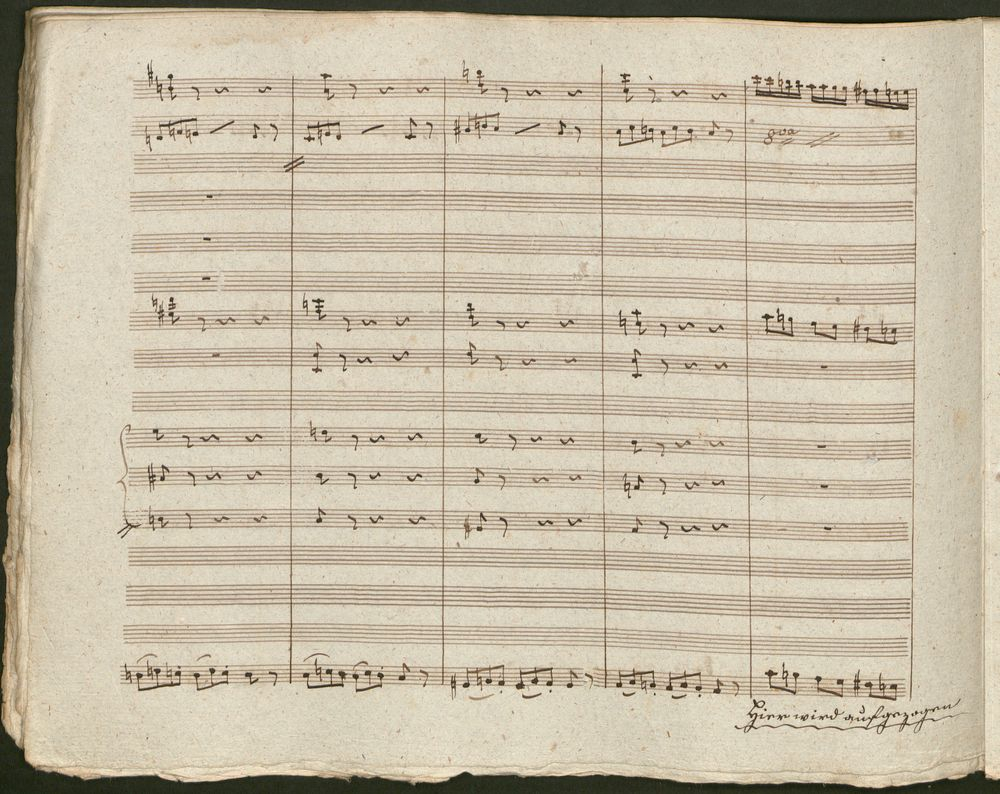 8va
Hier wird aufgezogen